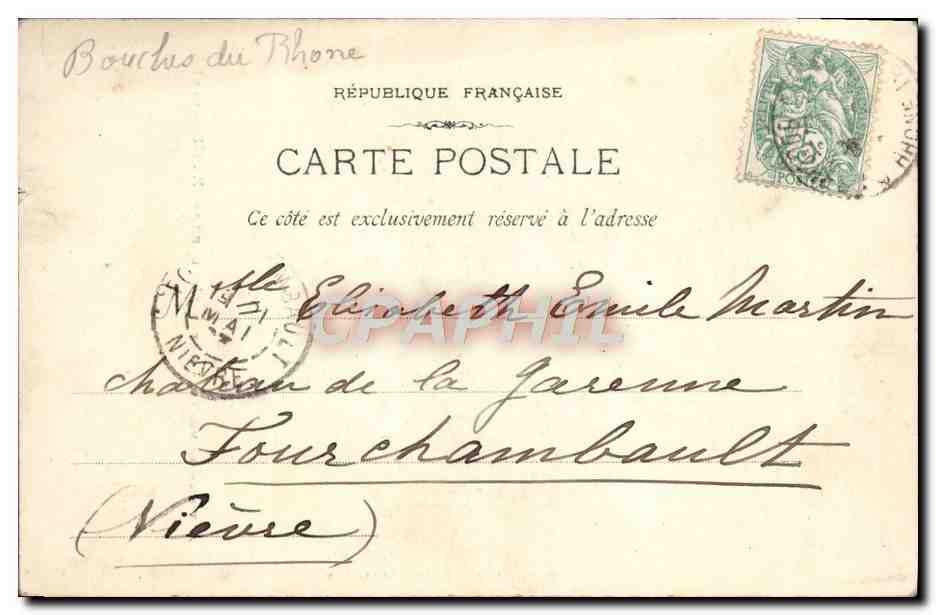 Bouches du Rhone
RÉPUBLIQUE FRANÇAISE
CARTE POSTALE
Ce côté est exclusivement réservé à l'adresse
Mlle Elisabeth Emile Martin
chateau de la Garenne
Fourchambault
(Nièvre)
MAI
NIEVRE
POSTES
CPAPHIL